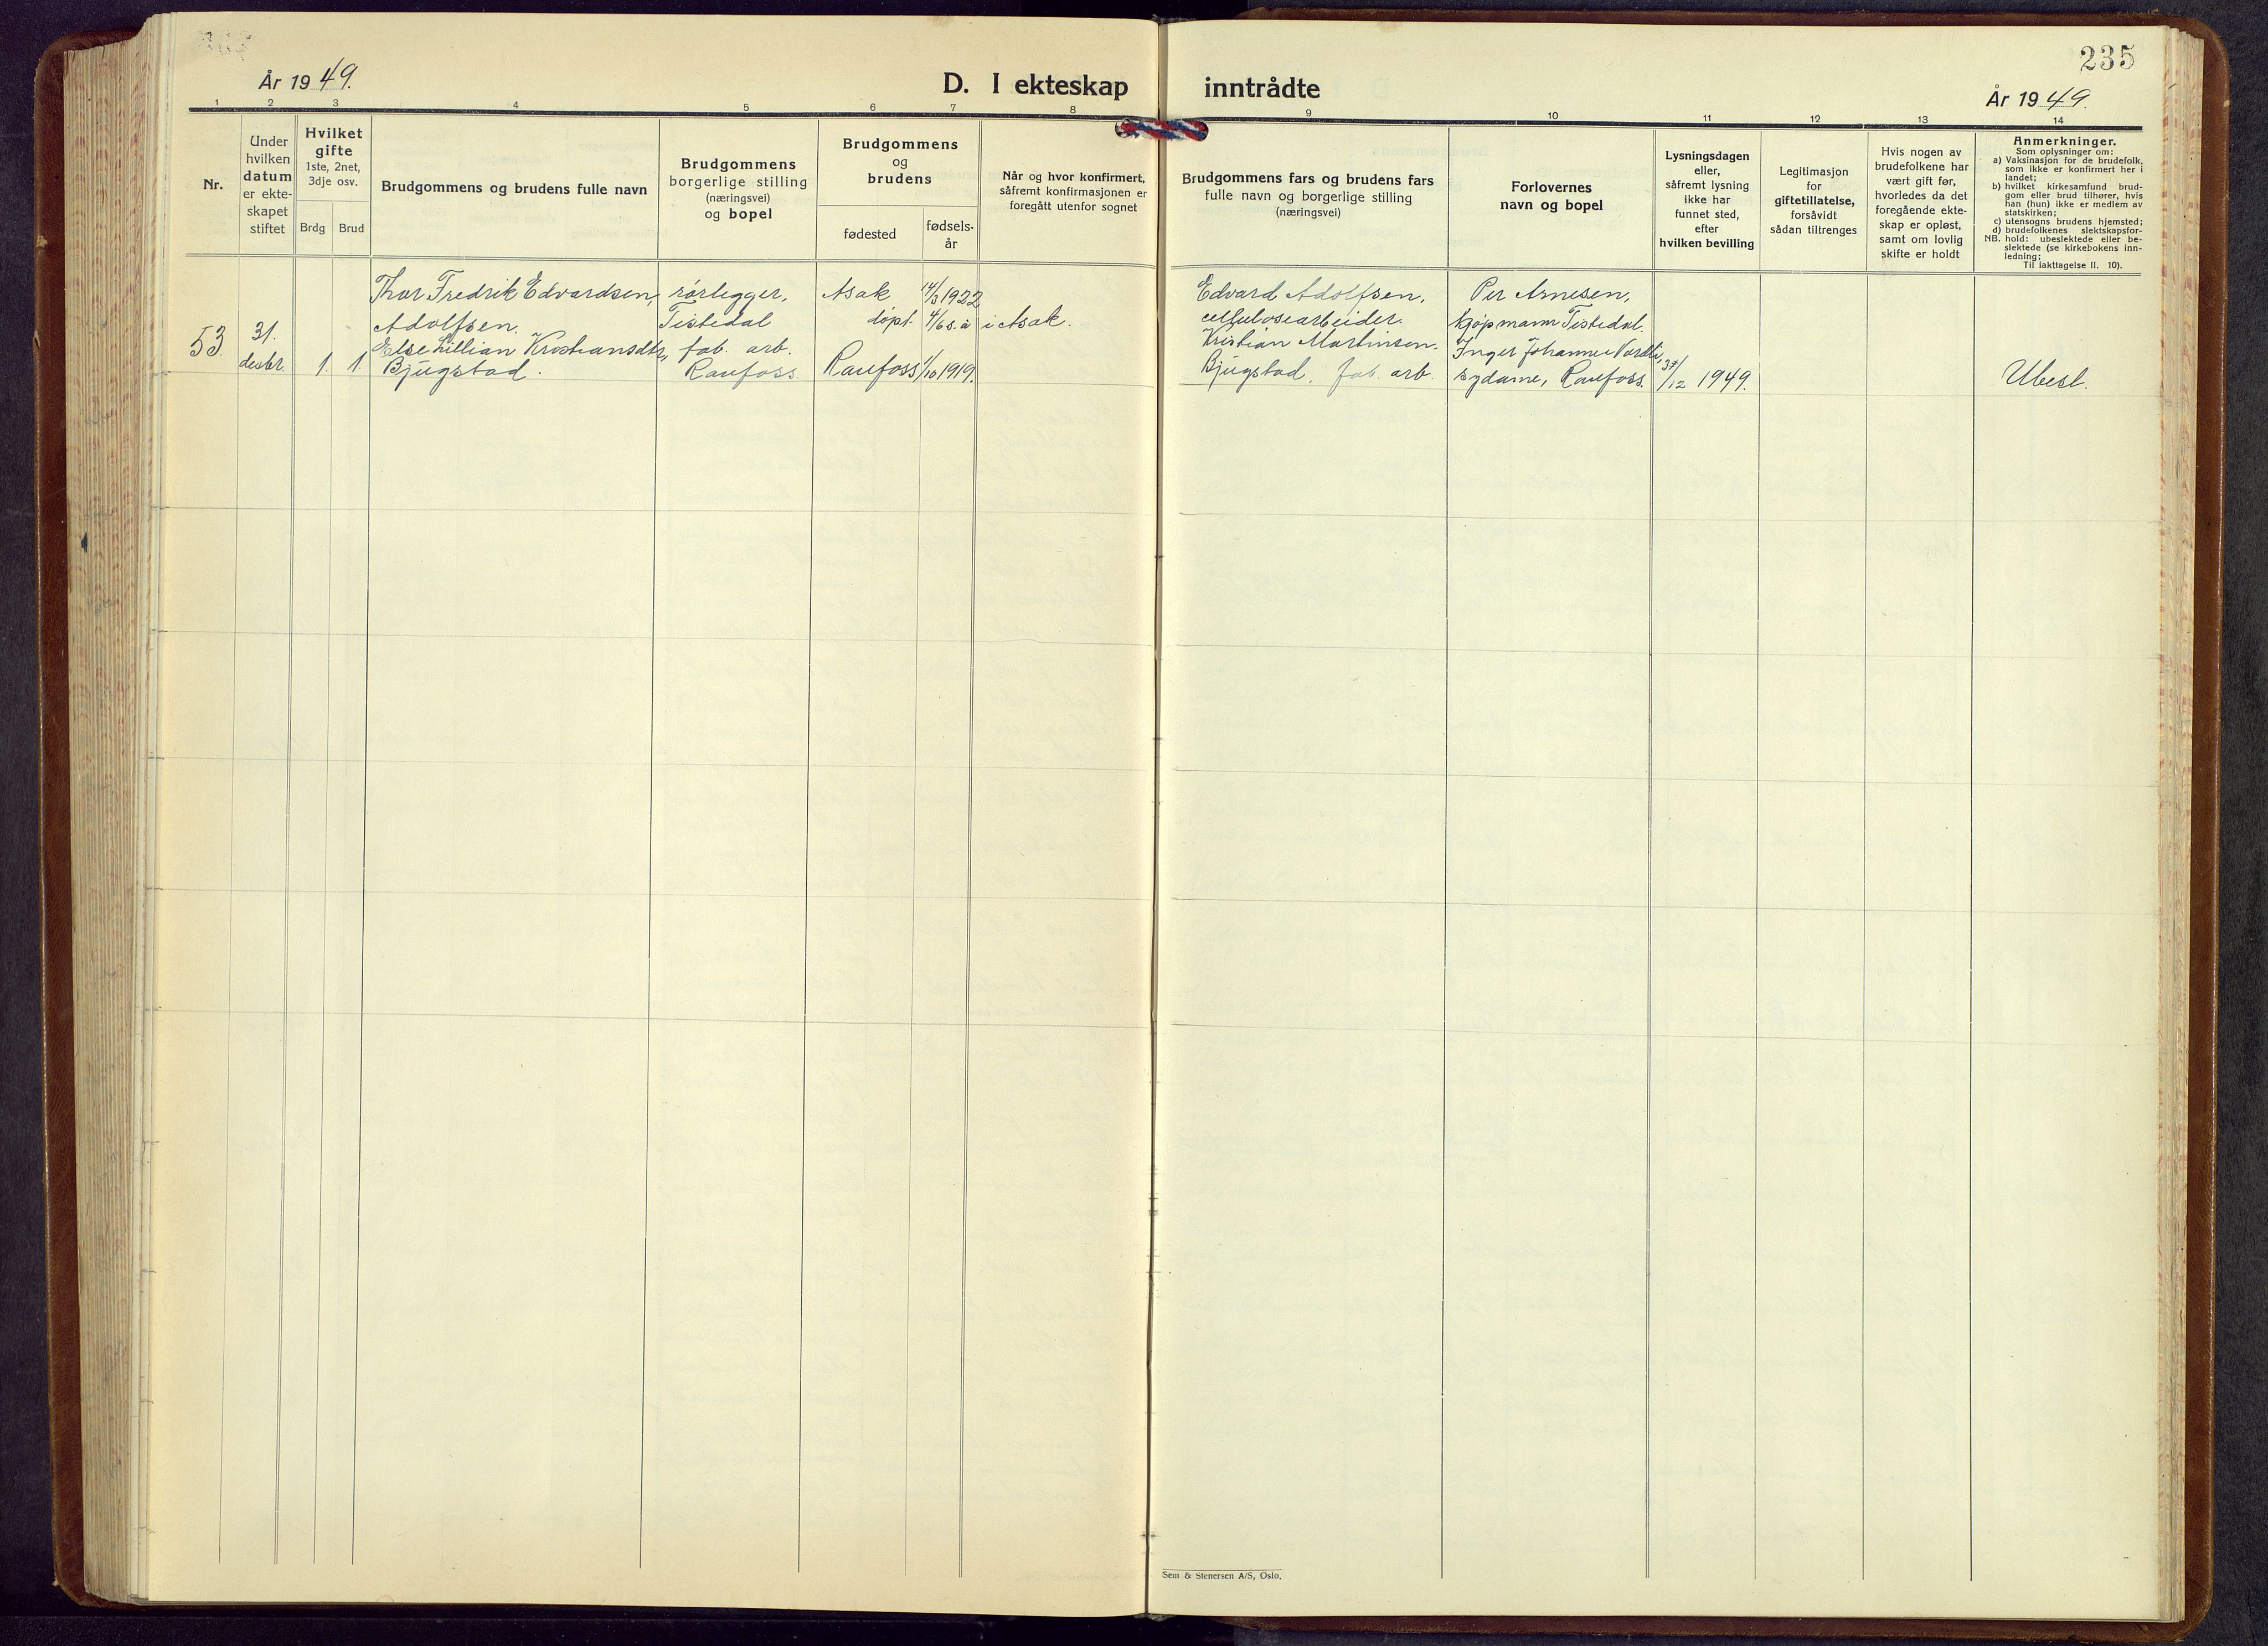 235
År 1949.
D. I ekteskap inntrådte
År 1949.
1 2 3 4 5 6 7 8 9 10 11 12 13 14
Nr.
Under
hvilken
datum
er ekte-
skapet
stiftet
Hvilket
gifte
1ste, 2net,
3dje osv.
Brdg Brud
Brudgommens og brudens fulle navn
Brudgommens
borgerlige stilling
(næringsvei)
og bopel
Brudgommens
og
brudens
fødested
fødsels-
år
Når og hvor konfirmert,
såfremt konfirmasjonen er
foregått utenfor sognet
Brudgommens fars og brudens fars
fulle navn og borgerlige stilling
(næringsvei)
Forlovernes
navn og bopel
Lysningsdagen
eller,
såfremt lysning
ikke har
funnet sted,
efter
hvilken bevilling
Legitimasjon
for
giftetillatelse,
forsåvidt
sådan tiltrenges
Hvis nogen av
brudefolkene har
vært gift før,
hvorledes da det
foregående ekte-
skap er opløst,
samt om lovlig
skifte er holdt
Anmerkninger.
Som oplysninger om:
a) Vaksinasjon for de brudefolk,
som ikke er konfirmert her i
landet;
b) hvilket kirkesamfund brud-
gom eller brud tilhører, hvis
han (hun) ikke er medlem av
statskirken;
c) utensogns brudens hjemsted;
d) brudefolkenes slektskapsfor-
NB. hold: ubeslektede eller be-
slektede (se kirkebokens inn-
ledning;
Til iakttagelse II. 10).
53
31.
desbr.
1. 1.
Thor Fredrik Edvardsen,
Adolfsen.
Else Lillian Kristiansdtr,
Bjugstad.
rørlegger,
Tistedal
fab. arb.
Raufoss.
Asak 14/3 1922
døpt. 4/6 s.å i Asak.
Raufoss 1/10 1919.
Edvard Adolfsen,
cellulosearbeider.
Kristian Martinsen.
Bjugstad, fab. arb.
Per Arnesen,
kjøpmann Tistedal.
Inger Johanne Nordli,
sydame, Raufoss.
/12 1949.
Ubesl.
Sem & Stenersen A/S, Oslo.